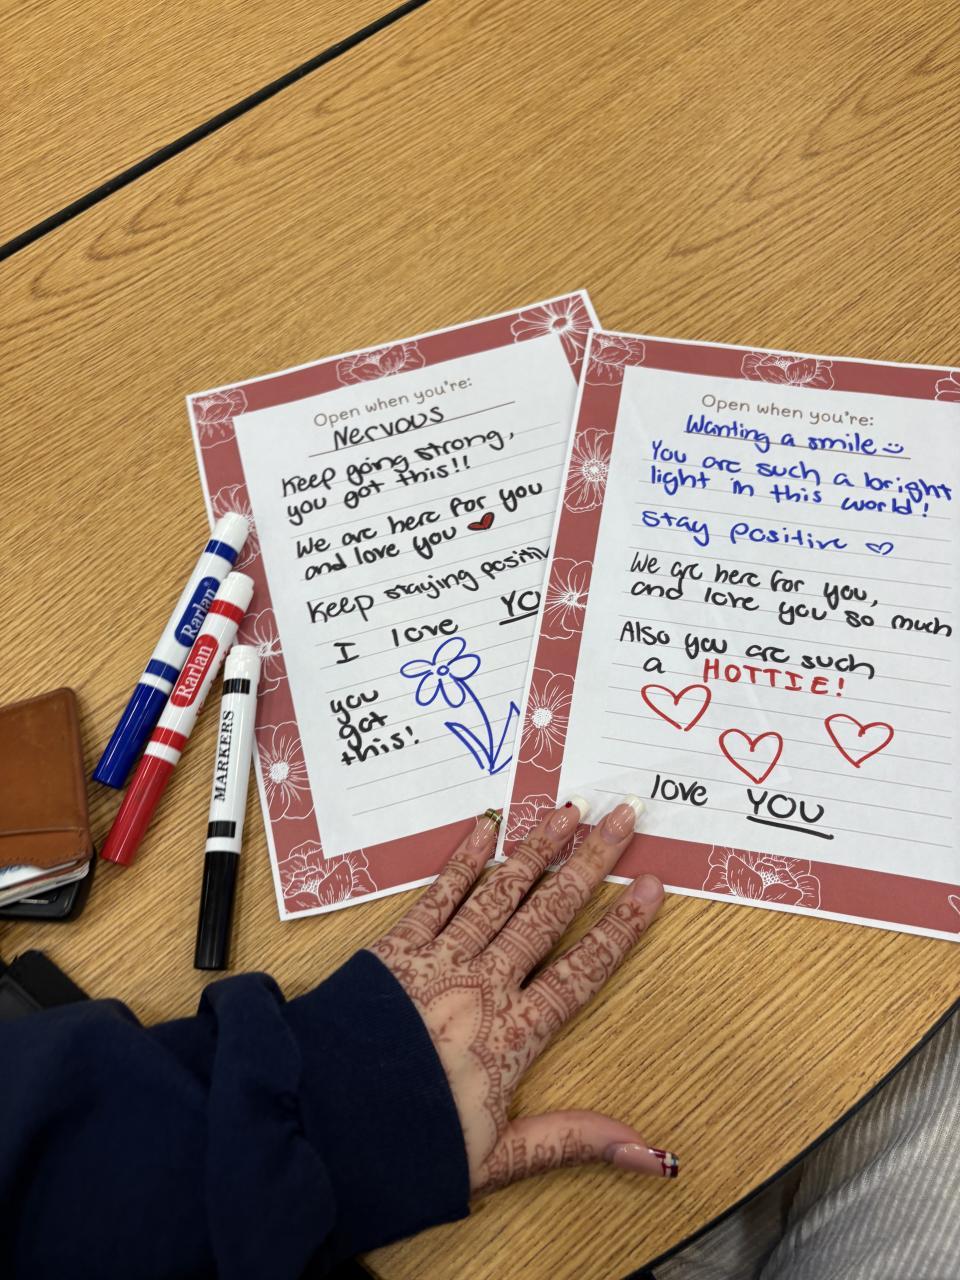 Open when you're:
Nervous
Keep going strong,
you got this!!
We are here for you
and love you
Keep staying
I love
you
got
this!
Open when you're:
Wanting a smile
You are such a bright
light in this world!
Stay Positive
We are here for you,
and love you so much
Also you are such
a HOTTIE!
love YOU
Rarlan
Rarlan
MARKERS